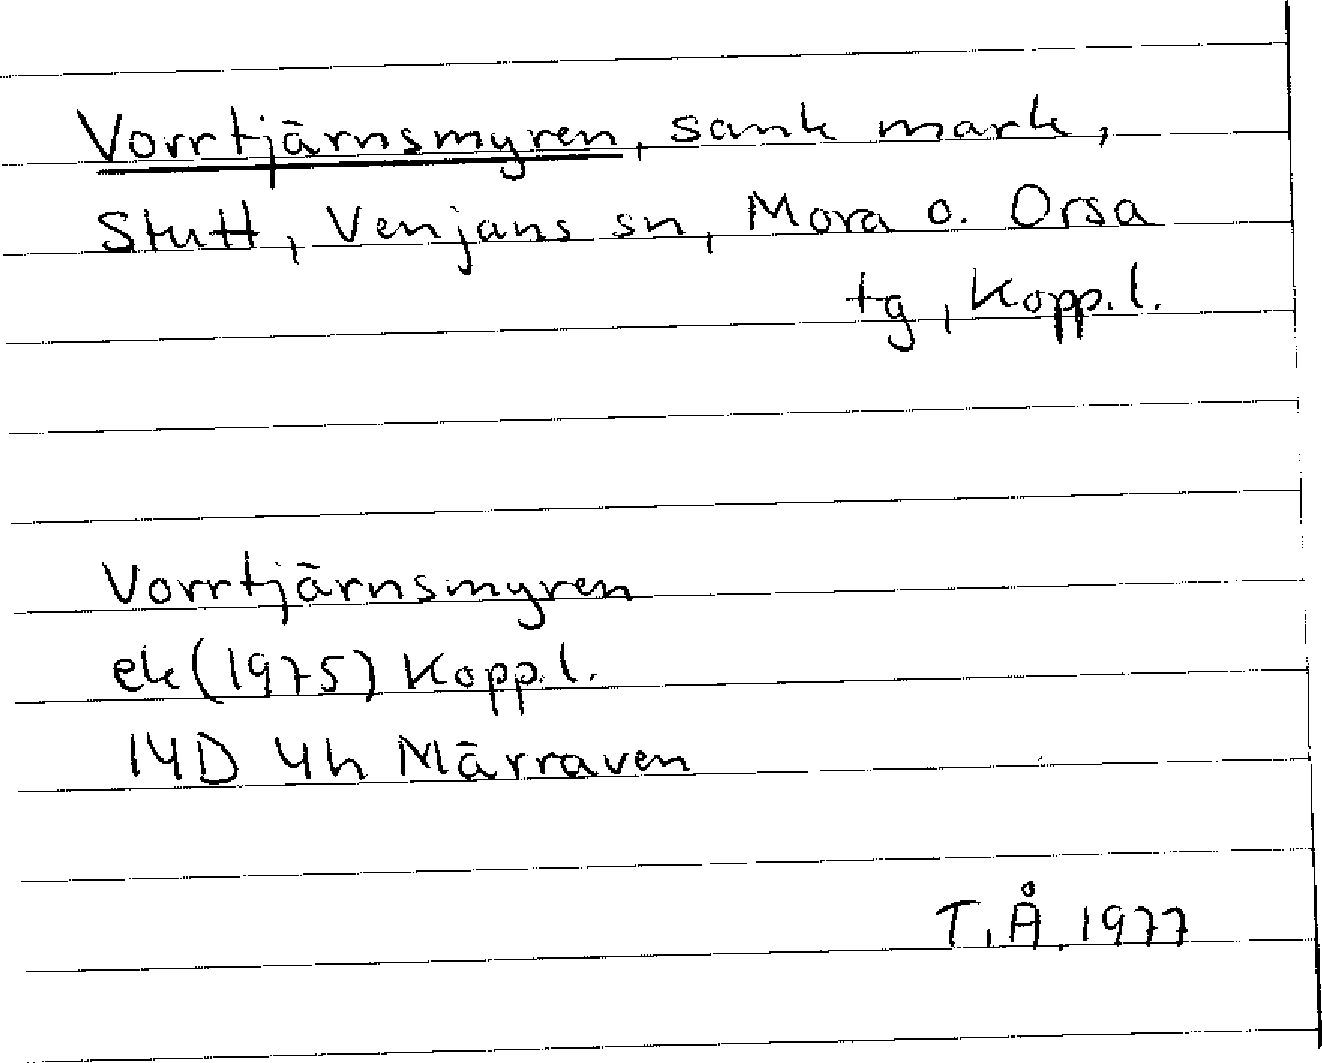 Vorrtjärnsmyren, sank mark,
Stutt, Venjans sn, Mora o. Orsa
tg, Kopp.l.
Vorrtjärnsmyren
ek (1975) Kopp.l.
14D 4h Märraven
T.Å. 1977